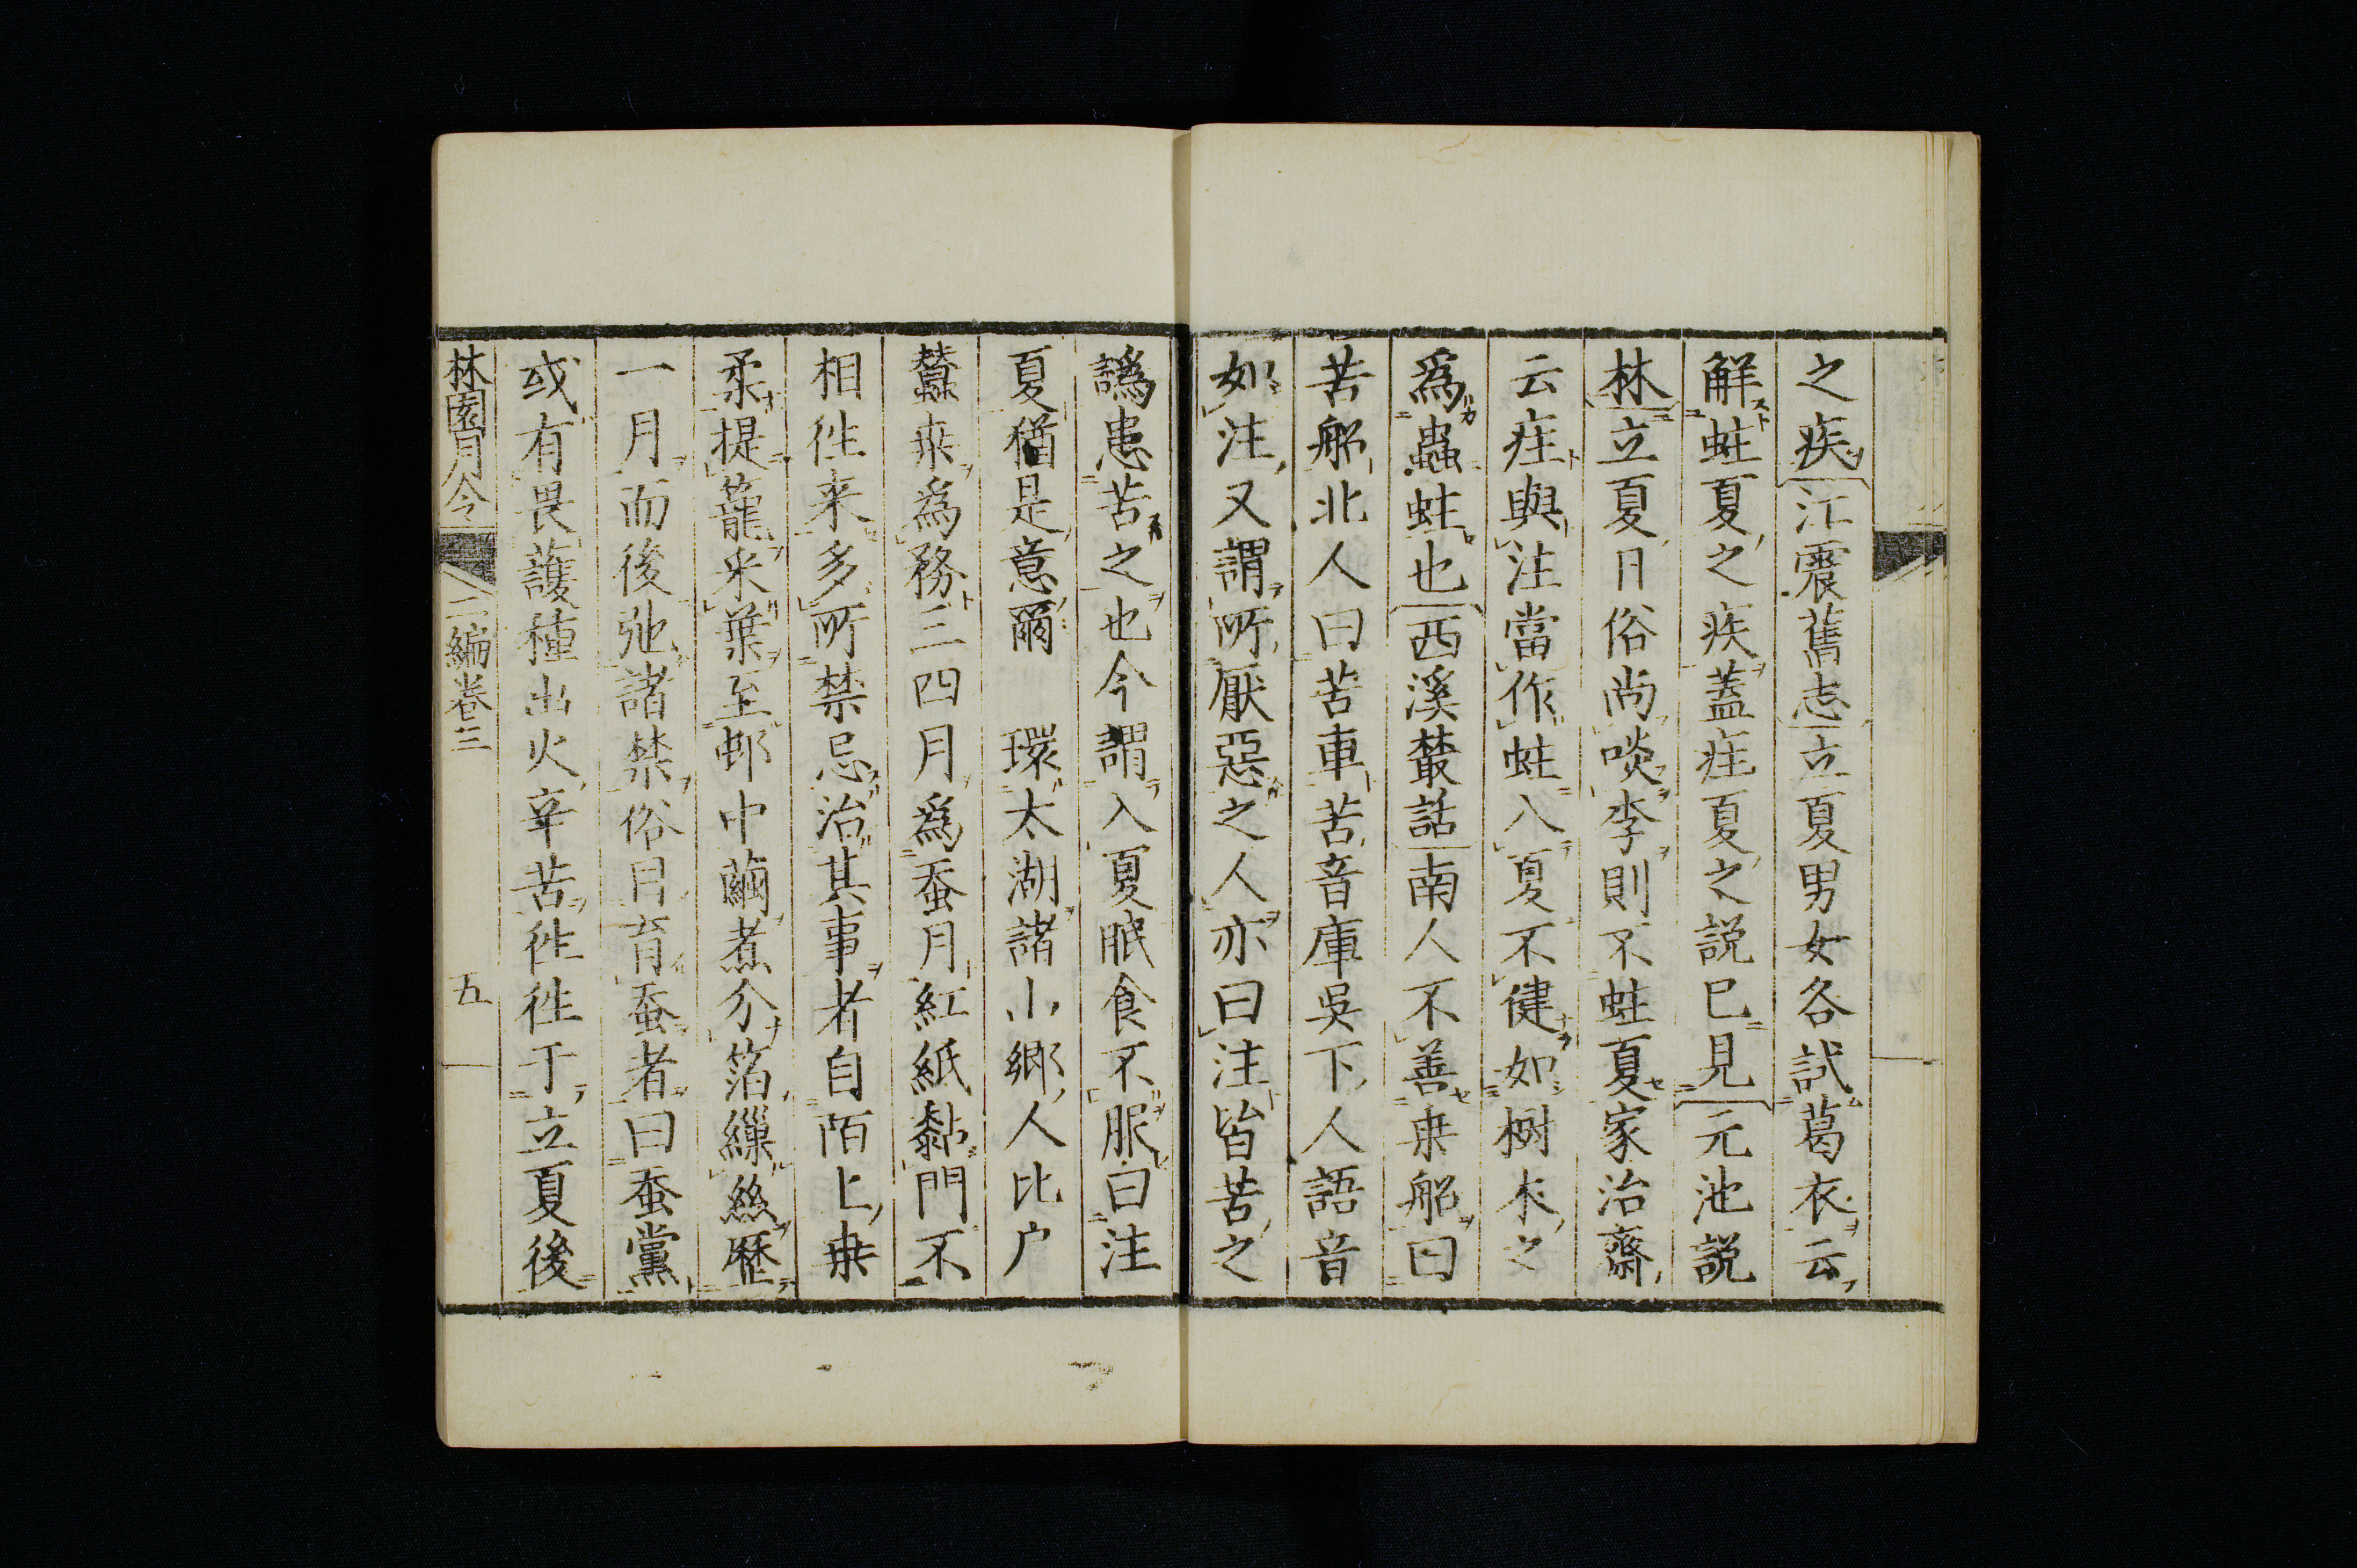 之疾江震舊志立夏男女各試葛衣云
解蛀夏之疾蓋疰夏之説已見元池説
林立夏日俗尚啖李則不蛀夏家治齋
云疰與注當作蛀入夏不健如樹木之
爲蟲蛀也西溪叢話南人不善乗船曰
苦船北人曰苦車苦音庫吳下人語音
如注又謂所厭惡之人亦曰注皆苦之
譌患苦之也今謂入夏眠食不服曰注
夏猶是意爾　環太湖諸小鄉人比户
蠶桒爲務三四月爲蚕月紅紙黏門不
相徃来多所禁忌治其事者自陌上桒
柔提籠采葉至邨中繭煮分箔繰絲歷
一月而後弛諸禁俗目育蚕者曰蚕黨
或有畏護種出火辛苦徃徃于立夏後
林園月令　二編卷三　五